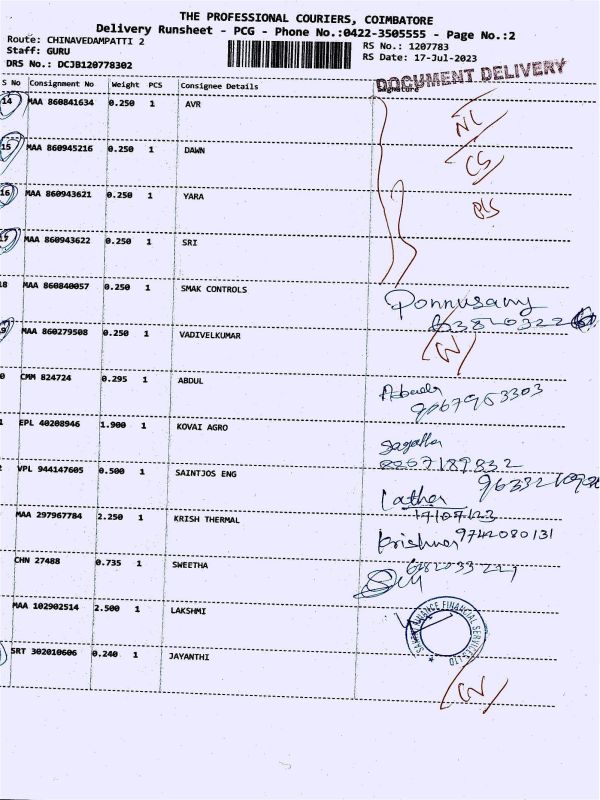 THE PROFESSIONAL COURIERS, COIMBATORE
Delivery Runsheet - PCG - Phone No.:0422-3505555 - Page No.:2
Route: CHINAVEDAMPATTI 2
RS No.: 1207783
Staff: GURU
RS Date: 17-Jul-2023
DRS No.: DCJB120778302
DOCUMENT DELIVERY
S No Consignment No Weight PCS Consignee Details Signature
14 MAA 860841634 0.250 1 AVR
NL
15 MAA 860945216 0.250 1 DAWN
CS
16 MAA 860943621 0.250 1 YARA
17 MAA 860943622 0.250 1 SRI
18 MAA 860840057 0.250 1 SMAK CONTROLS
Ponnusamy
9 MAA 860279508 0.250 1 VADIVELKUMAR
0 CMM 824724 0.295 1 ABDUL
1 EPL 40208946 1.900 1 KOVAI AGRO
2 VPL 944147605 0.500 1 SAINTJOS ENG
17107123
MAA 297967784 2.250 1 KRISH THERMAL
9742080131
CHN 27488 0.735 1 SWEETHA
MAA 102902514 2.500 1 LAKSHMI
FINANCE FINANCIAL SERVICES LTD
SRT 302010606 0.240 1 JAYANTHI